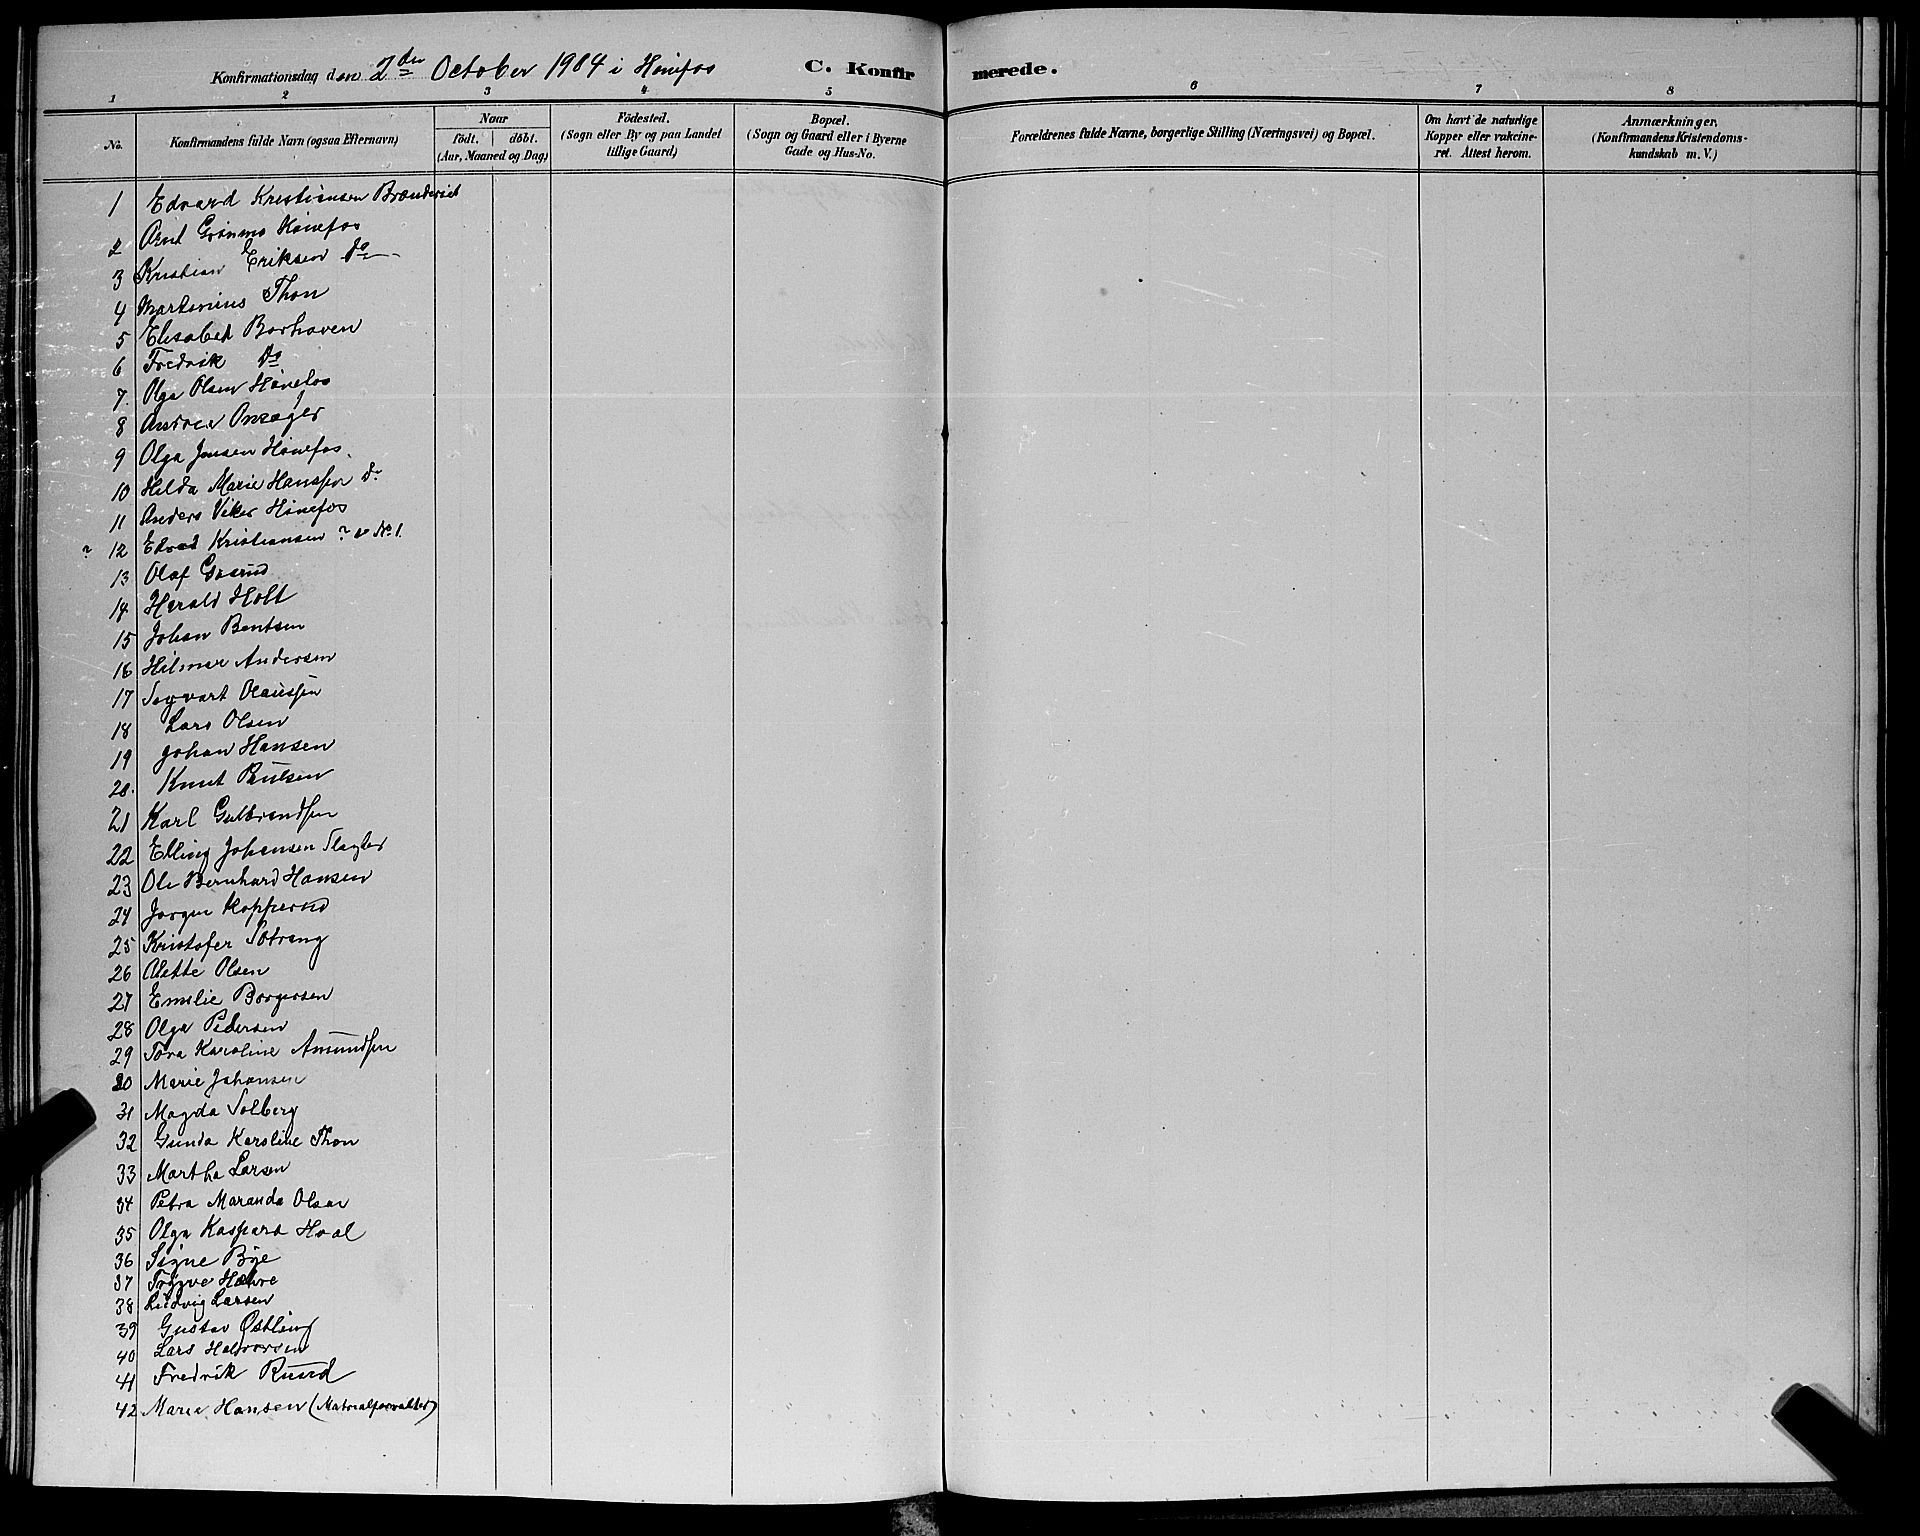 Konfirmationsdag den 2den October 1904 i Hønefos
C. Konfirmerede.
1 2 3 4 5 6 7 8
No. Konfirmandens fulde Navn (ogsaa Efternavn) Naar födt. döbt. (Aar, Maaned og Dag) Födested. (Sogn eller By og paa Landet tillige Gaard) Bopæl. (Sogn og Gaard eller i Byerne Gade og Hus-No. Forældrenes fulde Navne, borgerlige Stilling (Næringsvei) og Bopæl. Om havt de naturlige Kopper eller vakcineret. Attest herom. Anmærkninger, (Konfirmandens Kristendomskundskab m. V.)
1 Edvard Kristiansen
2 Arnt Grønmo Hønefos
3 Kristian Eriksen Do
4 Martinius Thon
5 Elisabet Borhaven
6 Fredrik Do
7. Olga Olsen Hønefos
8 Andrea Onsager
9 Olga Jensen Hønefos.
10 Hilda Marie Hanssen Do
11 Anders Viker Hønefos
? 12 Edvard Kristiansen ? v No 1.
13 Olaf
14 Harald Holt
15 Johan Bentsen
16 Hilmar Andersen
17 Sigvart Olaussen
18 Lars Olsen
19 Johan Hansen
20. Knut Paulsen
21 Karl Gulbrandsen
22 Elling Johansen Slagter
23 Ole Bernhard Hansen
24 Jørgen Hopperud
25 Kristofer Setrang
26 Alette Olsen
27 Emilie Borgersen
28 Olga Pedersen
29 Tora Karoline Amundsen
30 Marie Johansen
31 Magda Solberg
32 Gunda Karoline Thon
33 Martha Larsen
34 Petra Maranda Olsen
35 Olga Kaspara Hval
36 Signe Bye
37 Trygve Hæhre
38 Ludvig Larsen
39 Gustav Østling
40 Lars Halvorsen
41 Fredrik Ruud
42 Marie Hansen (Materialforvalter)